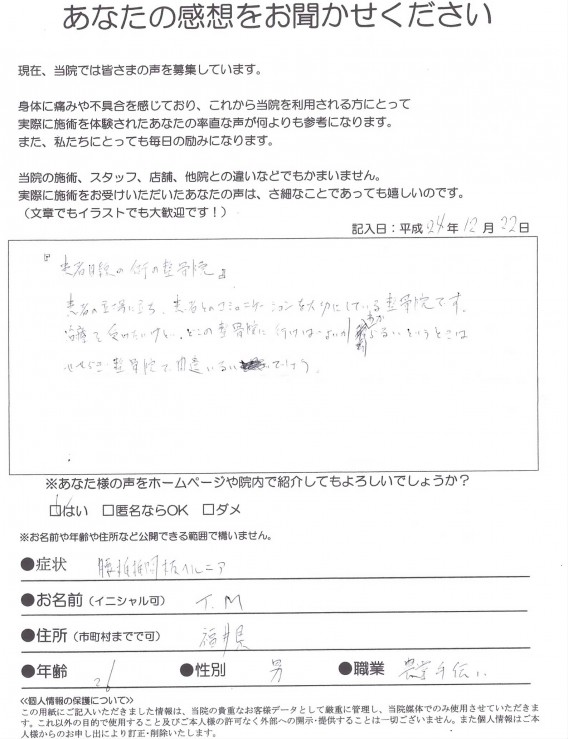 あなたの感想をお聞かせください
現在、当院では皆さまの声を募集しています。
身体に痛みや不具合を感じており、これから当院を利用される方にとって
実際に施術を体験されたあなたの率直な声が何よりも参考になります。
また、私たちにとっても毎日の励みになります。
当院の施術、スタッフ、店舗、他院との違いなどでもかまいません。
実際に施術をお受けいただいたあなたの声は、さ細なことであっても嬉しいのです。
（文章でもイラストでも大歓迎です！）
記入日：平成 24 年 12 月 22 日
『患者目線の 整骨院』
患者の立場に立ち、患者とのコミュニケーションを大切にしている整骨院です。
治療を受けたいけど、どこの整骨院に行けばよいか というときは
整骨院で間違いない でしょう。
※あなた様の声をホームページや院内で紹介してもよろしいでしょうか？
☑はい □匿名ならOK □ダメ
※お名前や年齢や住所など公開できる範囲で構いません。
●症状 腰椎椎間板ヘルニア
●お名前（イニシャル可） T.M
●住所（市町村までで可） 福井県
●年齢 26 ●性別 男 ●職業 農業手伝い
≪個人情報の保護について≫
この用紙にご記入いただきました情報は、当院の貴重なお客様データとして厳重に管理し、当院媒体でのみ使用させていただきま
す。これ以外の目的で使用すること及びご本人様の許可なく外部への開示・提供することは一切ございません。また個人情報はご本
人様からのお申し出により訂正・削除いたします。